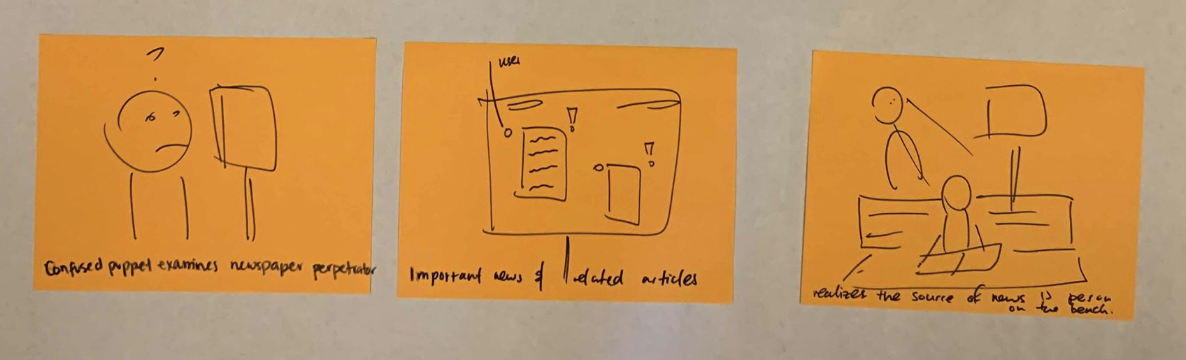 ?
Confused puppet examines newspaper perpetuator
user
!
!
Important news & related articles
realizes the source of news is person
on the bench.